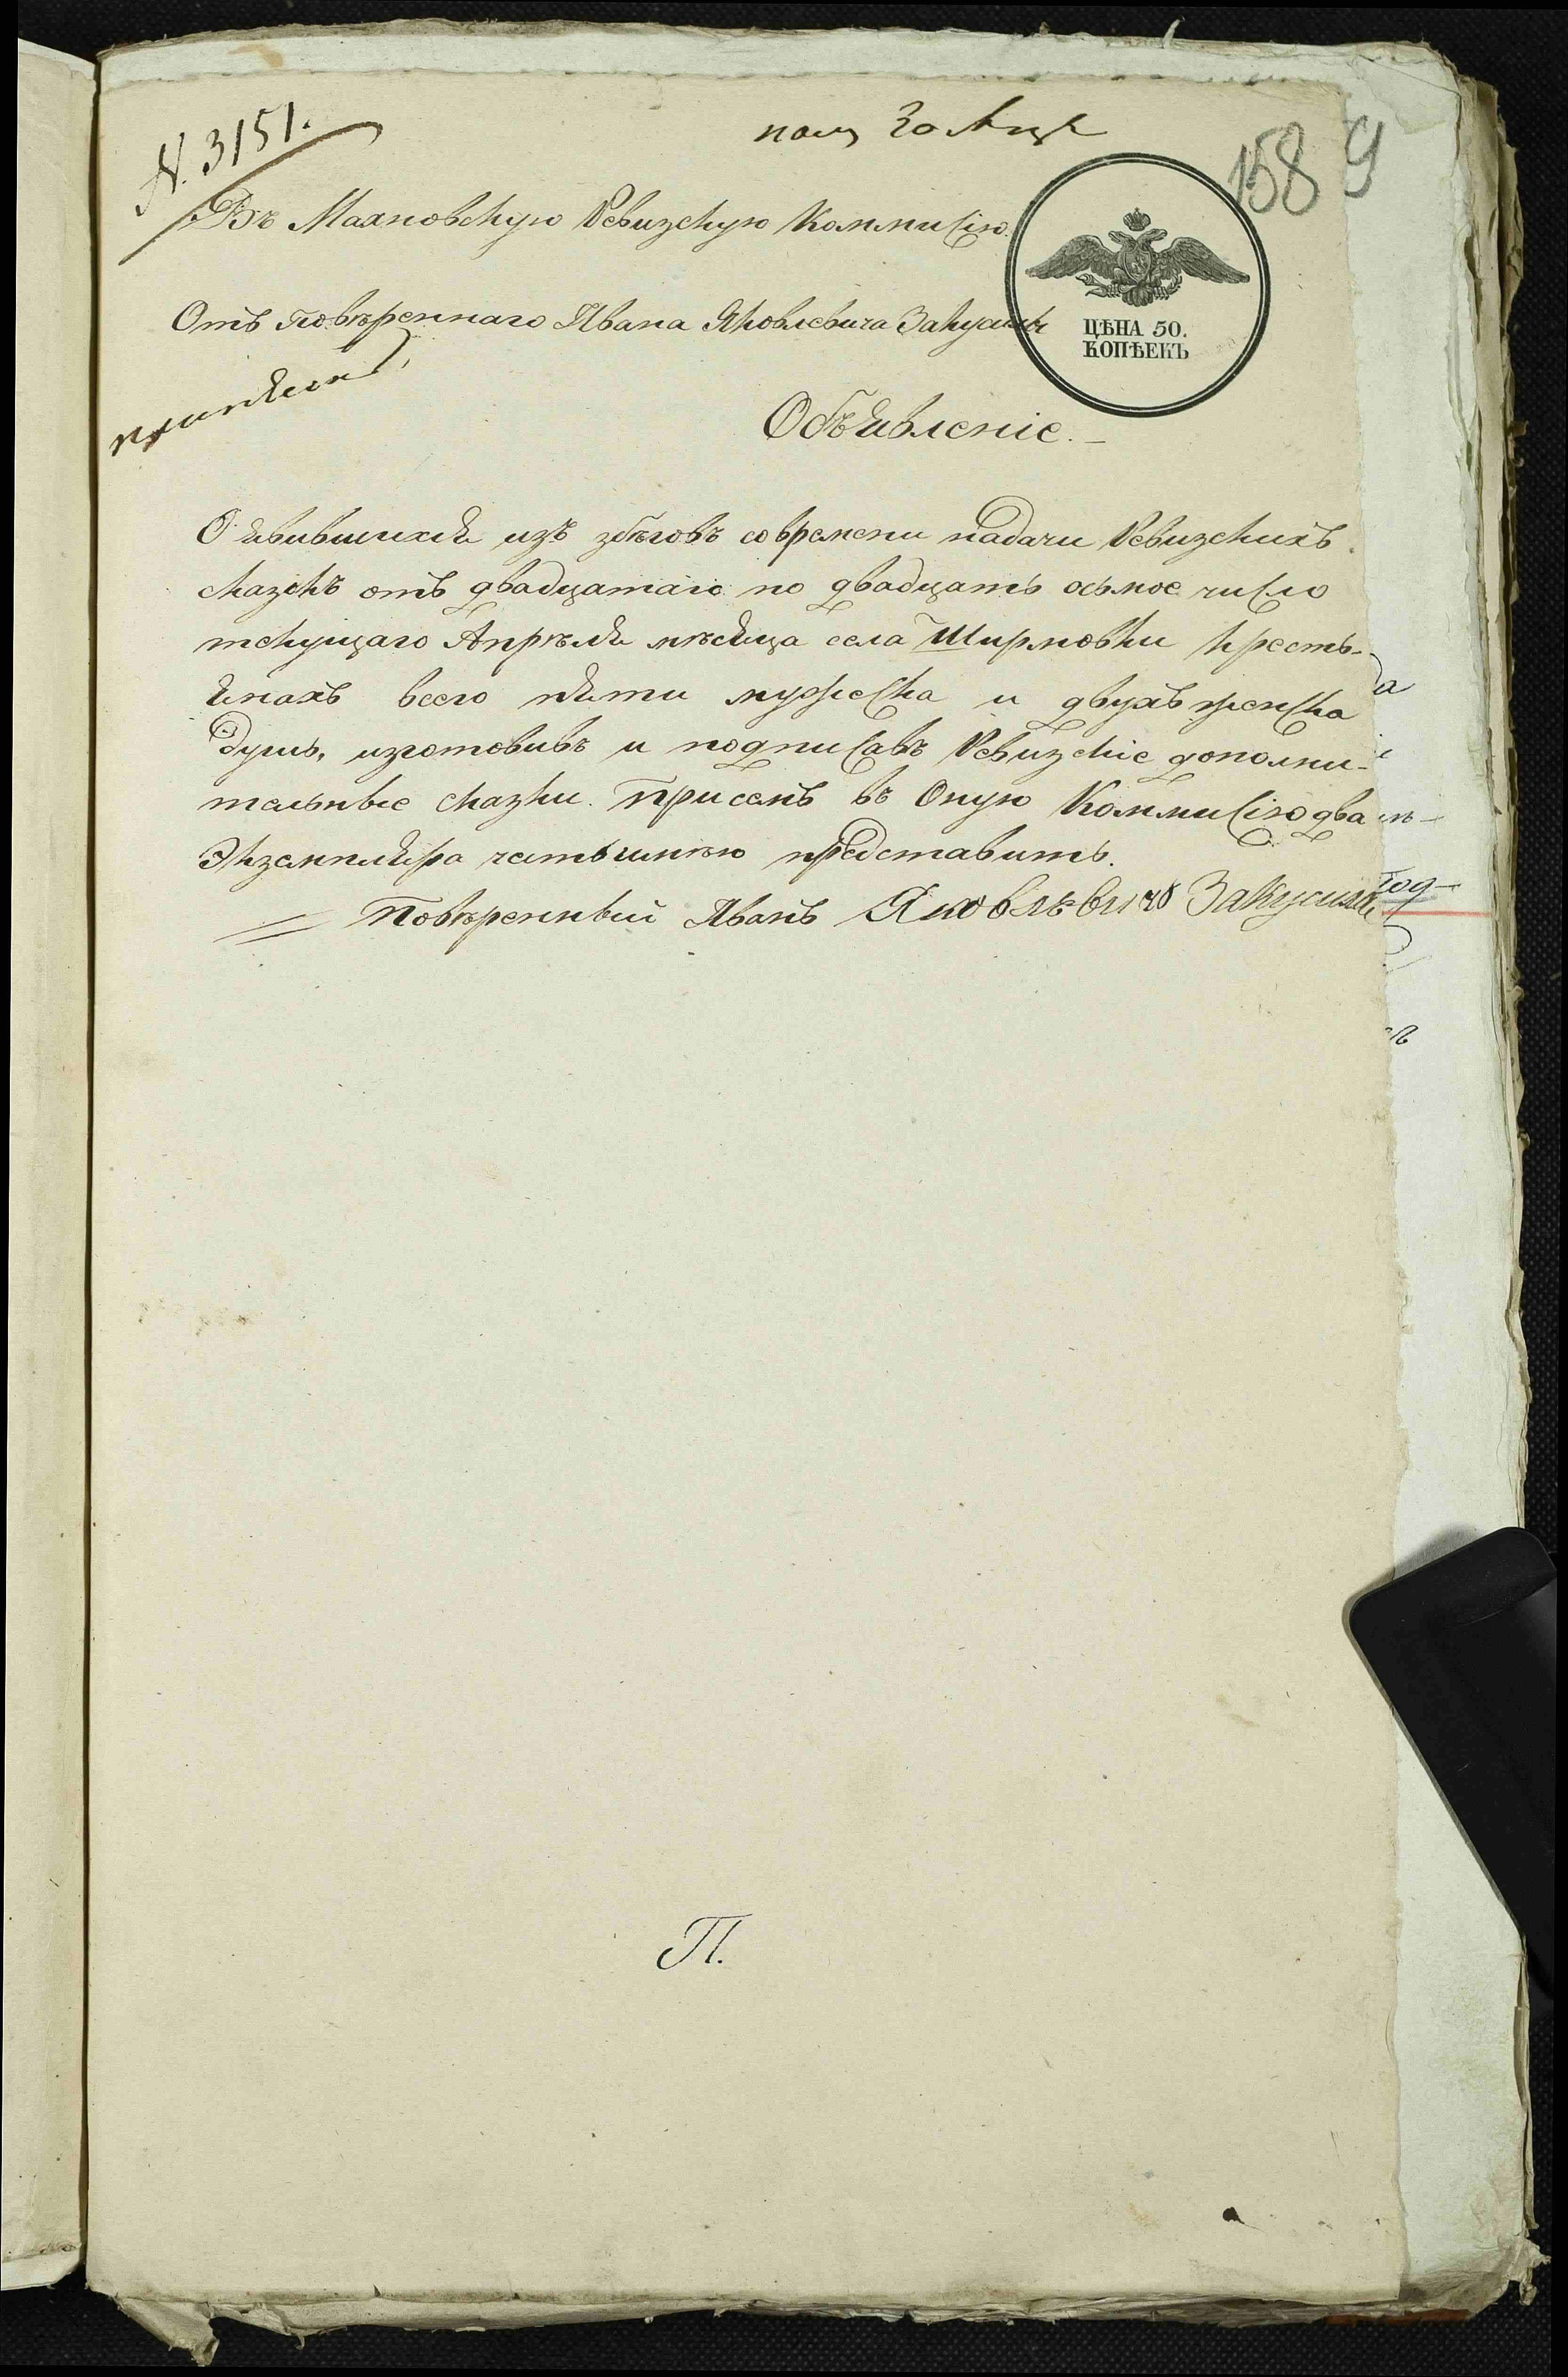 N. 3151.
пол 30 Апр
158 9
Въ Махновскую Ревизскую Коммисію.
Отъ повѣреннаго Ивана Яковлевича
ЦѢНА 50.
КОПѢЕКЪ
Объявленіе.
О явившихся изъ збѣговъ со времени падачи Ревизскихъ
сказокъ отъ двадцатаго по двадцать осьмое число
текущаго Апрѣля мѣсяца села Ширмовки кресть-
янахъ всего пяти мужеска и двухъ женска
душъ, изготовивъ и подписавъ Ревизскіе дополни-
тельные сказки. При семъ въ Оную Коммисію два
Экземпляра честь имѣю представить.
Повѣренный Иванъ Яковлѣвичъ
П.